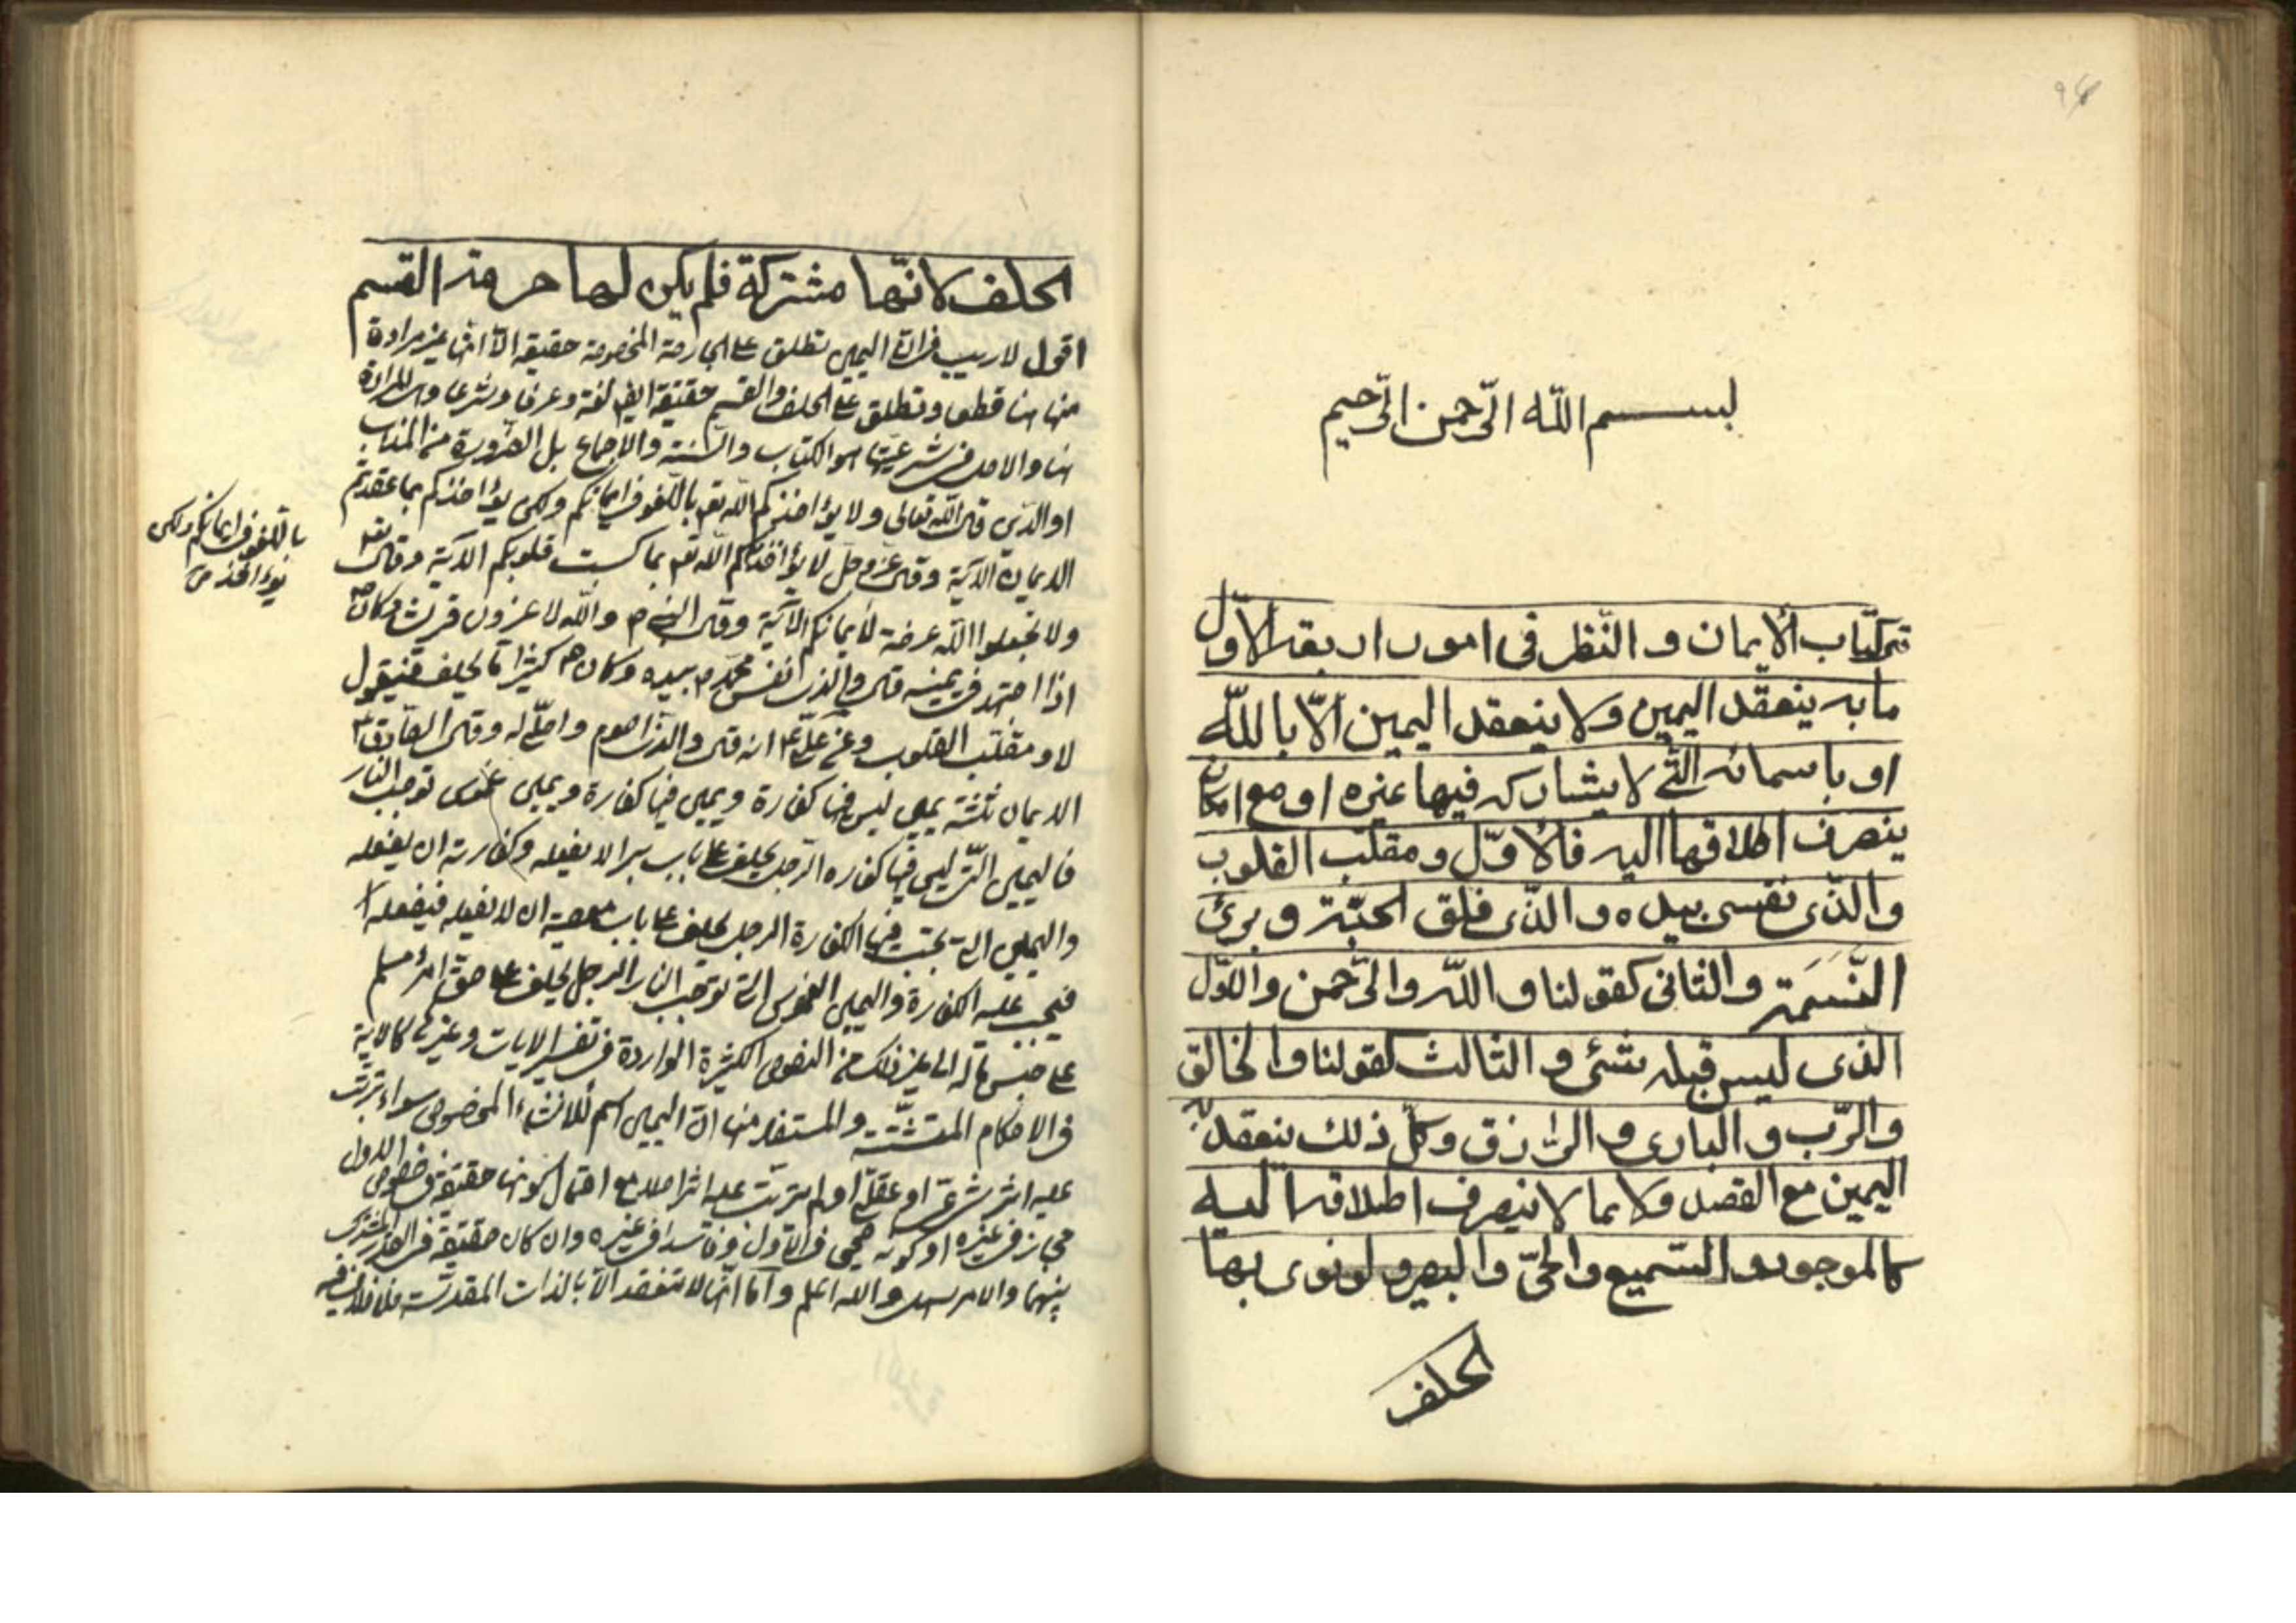 بسم الله الرّحمن الرّحيم
كتاب الأيمان و النّظر فى امور اربعة الاوّل
ما به ينعقد اليمين ولا ينعقد اليمين الّا باللّه
او باسمائه الّتى لا يشاركه فيها غيره او مع امكان
ينصرف اطلاقها اليه فالاوّل و مقلّب القلوب
والّذى نفسى بيده والّذى فلق الحبّة و برئ
النَّسَمَة والثانى كقولنا و اللّه والرّحمن والاوّل
الذى ليس قبله شئ و الثالث كقولنا والخالق
والرّب و البارى و الرازق وكلّ ذلك ينعقد به
اليمين مع القصد ولا بما لا ينصرف اطلاقه اليه
كالموجود و السّميع والحىّ والبصير و لو نوى بها
الحلف
الحلف لانّها مشتركة فلم يكن لها حرمة القسم
اقول لا ريب فى انّ اليمين تطلق على الجارحة المخصوصة حقيقة الّا انّها غير مرادة
منها هنا قطعا وتطلق على الحلف والقسم حقيقة ايضا لغة وعرفا وشرعا وهى المرادة
هنا والاصل فى شرعيّتها هو الكتاب والسّنة والاجماع بل الضرورة من المذهب
او الدّين قال اللّه تعالى ولا يؤاخذكم اللّه باللّغو فى ايمانكم ولكن يؤاخذكم بما عقدتم
الايمان الآية وقال عزّ وجلّ لا يؤاخذكم اللّه بما كسبت قلوبكم الآية وقال تع
باللّغو فى ايمانكم ولكن
يؤاخذكم
ولا تجعلوا اللّه عرضة لأيمانكم الآية وقال النبى ص واللّه لاغزون قريشا وكان ص
اذا اجتهد فى يمينه قال والّذى نفس محمّد ص بيده وكان ص كثيرا ما يحلف فيقول
لا و مقلّب القلوب وعن علىّ ع انه قال والّذى اصوم واصلّى له وقال الصّادق ع
الايمان ثلثة يمين ليس فيها كفارة ويمين فيها كفارة ويمين غموس توجب النار
فاليمين الّتى ليس فيها كفاره الرّجل يحلف على باب برّ الا يفعله وكفارته ان يفعله
واليمين الّتى تجب فيها الكفارة الرجل يحلف على باب معصية ان لا يفعله فيفعله
فيجب عليه الكفارة واليمين الغموس الّتى توجب النار الرجل يحلف على حقّ امرئ مسلم
على حبس ماله الى غير ذلك من النصوص الكثيرة الواردة فى تفسير الايات وغيرها كالاية
فى الاحكام المتشتّتة والمستفاد منها انّ اليمين اسم للانشاء المخصوص سواء ترتّب
عليه اثر شرعىّ او عقلىّ او لم يترتّب عليه اثر اصلا مع احتمال كونها حقيقة فى خصوص الاول
مجاز فى غيره او كونه صحيحا فى الاول وفاسدا فى غيره وان كان حقيقة فى القدر المشترك
بينهما والامر سهل واللّه اعلم وامّا انّها لا تنعقد الّا بالذات المقدّسة فلا خلاف فيه